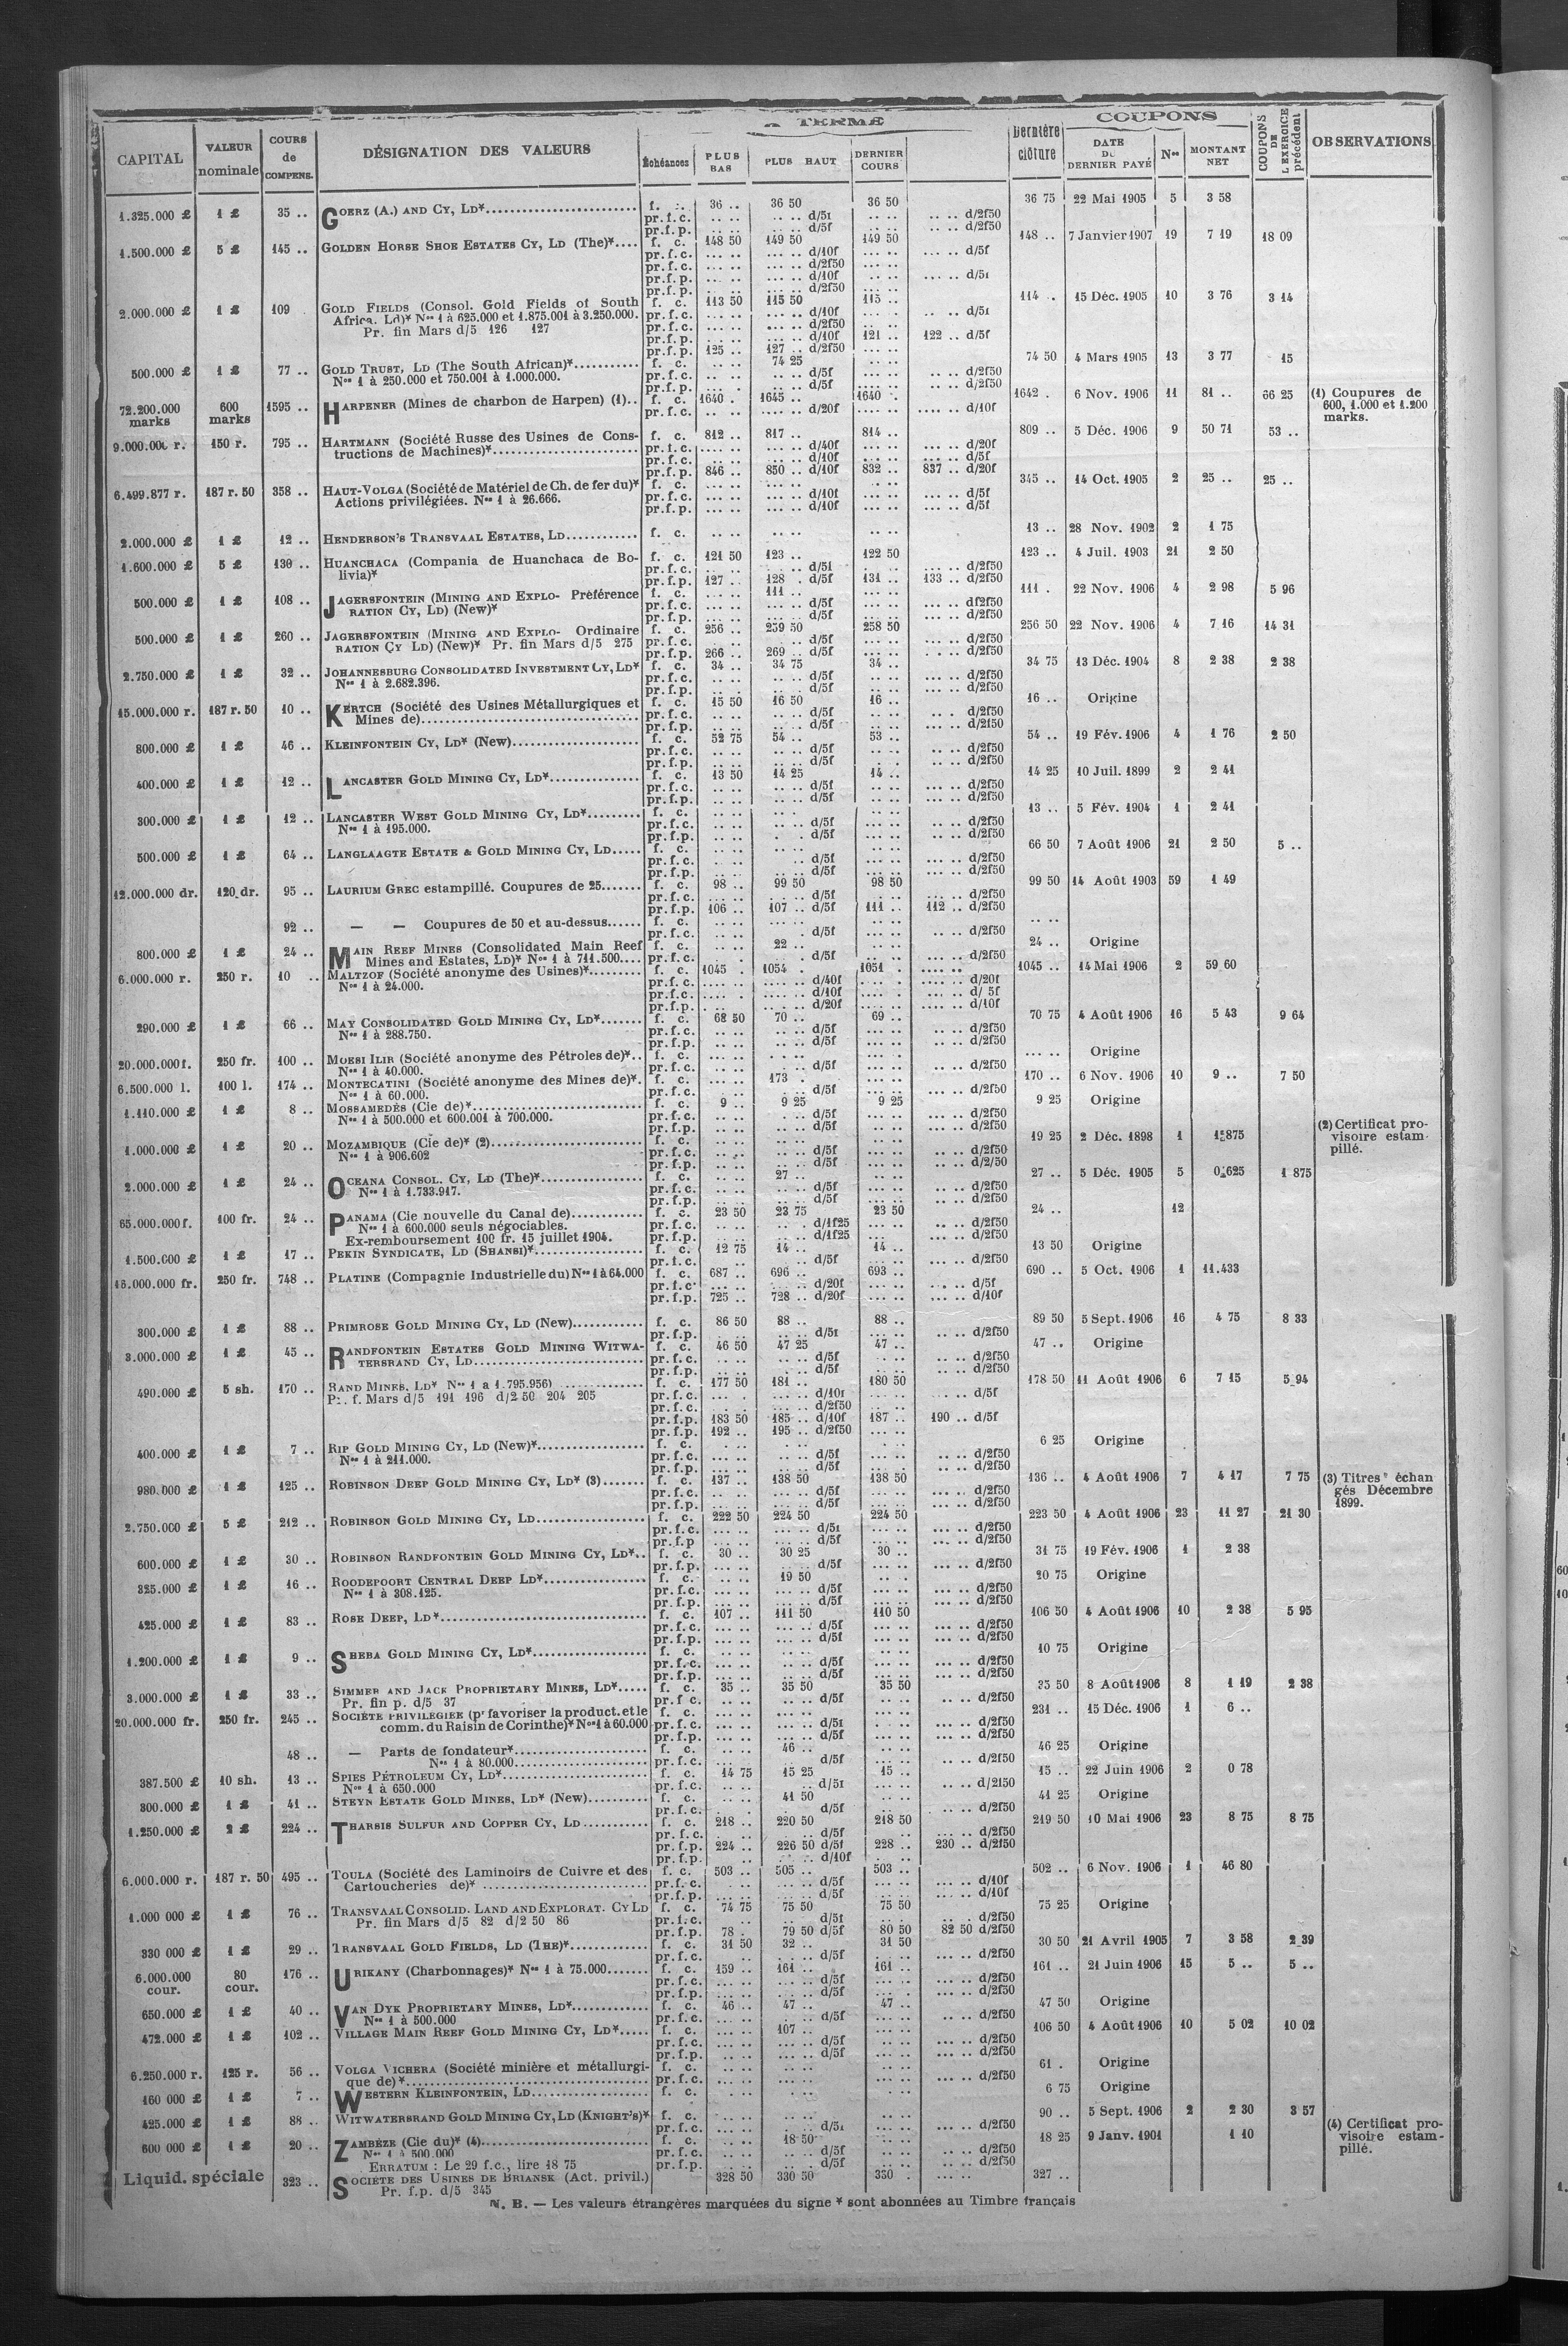 A TERME COUPONS
CAPITAL VALEUR nominale COURS de COMPENS. DÉSIGNATION DES VALEURS Échéances PLUS BAS PLUS HAUT DERNIER COURS Dernière clôture DATE DU DERNIER PAYÉ Nos MONTANT NET COUPONS DE L'EXERCICE précédent OBSERVATIONS
1.325.000 £ 1 £ 35 .. GOERZ (A.) AND CY, LD* f. c. 36 .. 36 50 36 50 36 75 22 Mai 1905 5 3 58
pr.f.c. .. .. .. .. d/5f .. .. .. .. d/2f50
pr.f.p. .. .. .. .. d/5f .. .. .. .. d/2f50
1.500.000 £ 5 £ 145 .. GOLDEN HORSE SHOE ESTATES CY, LD (The)*.... f. c. 148 50 149 50 149 50 148 .. 7 Janvier 1907 19 7 19 18 09
pr.f.c. d/10f d/5f
pr.f.c. d/2f50
pr.f.p. d/10f d/5f
pr.f.p. d/2f50
2.000.000 £ 1 £ 109 GOLD FIELDS (Consol. Gold Fields of South f. c. 113 50 115 50 115 .. 114 . 15 Déc. 1905 10 3 76 3 14
Africa. Ld)* Nos 1 à 625.000 et 1.875.001 à 3.250.000. pr.f.c. d/10f d/5f
Pr. fin Mars d/5 126 127 pr.f.c. d/2f50
pr.f.p. d/10f 121 .. 122 .. d/5f
pr.f.p. 125 .. 127 .. d/2f50
500.000 £ 1 £ 77 .. GOLD TRUST, LD (The South African)* f. c. 74 25 74 50 4 Mars 1905 13 3 77 15
Nos 1 à 250.000 et 750.001 à 1.000.000. pr.f.c. d/5f d/2f50
pr.f.p. d/5f d/2f50
72.200.000 marks 600 marks 1595 .. HARPENER (Mines de charbon de Harpen) (1).. f. c. 1640 . 1645 .. 1640 . 1642 . 6 Nov. 1906 11 81 .. 66 25 (1) Coupures de 600, 1.000 et 1.200 marks.
pr.f.c. d/20f d/10f
9.000.000 r. 150 r. 795 .. HARTMANN (Société Russe des Usines de Cons- f. c. 812 .. 817 .. 814 .. 809 .. 5 Déc. 1906 9 50 71 53 ..
tructions de Machines)* pr.f.c. d/40f d/20f
pr.f.c. d/10f d/5f
pr.f.p. 846 .. 850 .. d/10f 832 .. 837 .. d/20f
6.499.877 r. 187 r. 50 358 .. HAUT-VOLGA (Société de Matériel de Ch. de fer du)* f. c. 345 .. 14 Oct. 1905 2 25 .. 25 ..
Actions privilégiées. Nos 1 à 26.666. pr.f.c. d/10f d/5f
pr.f.p. d/10f d/5f
2.000.000 £ 1 £ 12 .. HENDERSON'S TRANSVAAL ESTATES, LD f. c. 13 .. 28 Nov. 1902 2 1 75
1.600.000 £ 5 £ 130 .. HUANCHACA (Compania de Huanchaca de Bo- f. c. 121 50 123 .. 122 50 123 .. 4 Juil. 1903 21 2 50
livia)* pr.f.c. d/5f d/2f50
pr.f.p. 127 .. 128 . d/5f 131 .. 133 .. d/2f50
500.000 £ 1 £ 108 .. JAGERSFONTEIN (MINING AND EXPLO- Préférence f. c. 111 . 111 . 22 Nov. 1906 4 2 98 5 96
RATION CY, LD) (New)* pr.f.c. d/5f df2f50
pr.f.p. d/5f d/2f50
500.000 £ 1 £ 260 .. JAGERSFONTEIN (MINING AND EXPLO- Ordinaire f. c. 256 .. 259 50 258 50 256 50 22 Nov. 1906 4 7 16 14 31
RATION CY LD) (New)* Pr. fin Mars d/5 275 pr.f.c. d/5f d/2f50
pr.f.p. 266 .. 269 .. d/5f d/2f50
2.750.000 £ 1 £ 32 .. JOHANNESBURG CONSOLIDATED INVESTMENT CY, LD* f. c. 34 .. 34 75 34 .. 34 75 13 Déc. 1904 8 2 38 2 38
Nos 1 à 2.682.396. pr.f.c. d/5f d/2f50
pr.f.p. d/5f d/2f50
15.000.000 r. 187 r. 50 10 .. KERTCH (Société des Usines Métallurgiques et f. c. 15 50 16 50 16 .. 16 .. Origine
Mines de) pr.f.c. d/5f d/2f50
pr.f.p. d/5f d/2f50
800.000 £ 1 £ 46 .. KLEINFONTEIN CY, LD* (New) f. c. 52 75 54 .. 53 .. 54 .. 19 Fév. 1906 4 1 76 2 50
pr.f.c. d/5f d/2f50
pr.f.p. d/5f d/2f50
400.000 £ 1 £ 12 .. LANCASTER GOLD MINING CY, LD* f. c. 13 50 14 25 14 .. 14 25 10 Juil. 1899 2 2 41
pr.f.c. d/5f d/2f50
pr.f.p. d/5f d/2f50
300.000 £ 1 £ 12 .. LANCASTER WEST GOLD MINING CY, LD* f. c. 13 .. 5 Fév. 1904 1 2 41
Nos 1 à 195.000. pr.f.c. d/5f d/2f50
pr.f.p. d/5f d/2f50
500.000 £ 1 £ 64 .. LANGLAAGTE ESTATE & GOLD MINING CY, LD f. c. 66 50 7 Août 1906 21 2 50 5 ..
pr.f.c. d/5f d/2f50
pr.f.p. d/5f d/2f50
12.000.000 dr. 120 dr. 95 .. LAURIUM GREC estampillé. Coupures de 25 f. c. 98 .. 99 50 98 50 99 50 14 Août 1903 59 1 49
pr.f.c. d/5f d/2f50
pr.f.p. 106 .. 107 .. d/5f 111 .. 112 .. d/2f50
92 .. — — Coupures de 50 et au-dessus f. c.
pr.f.c. d/5f d/2f50
800.000 £ 1 £ 24 .. MAIN REEF MINES (Consolidated Main Reef f. c. 22 .. 24 .. Origine
Mines and Estates, LD)* Nos 1 à 711.500.... pr.f.c. d/5f d/2f50
6.000.000 r. 250 r. 10 .. MALTZOF (Société anonyme des Usines)* f. c. 1045 . 1054 . 1051 . 1045 .. 14 Mai 1906 2 59 60
Nos 1 à 24.000. pr.f.c. d/40f d/20f
pr.f.c. d/10f d/ 5f
pr.f.p. d/20f d/10f
290.000 £ 1 £ 66 .. MAY CONSOLIDATED GOLD MINING CY, LD* f. c. 68 50 70 .. 69 .. 70 75 4 Août 1906 16 5 43 9 64
Nos 1 à 288.750. pr.f.c. d/5f d/2f50
pr.f.p. d/5f d/2f50
20.000.000 f. 250 fr. 100 .. MOESI ILIR (Société anonyme des Pétroles de)*.. f. c. Origine
Nos 1 à 40.000. pr.f.c. d/5f d/2f50
6.500.000 l. 100 l. 174 .. MONTECATINI (Société anonyme des Mines de)*. f. c. 173 . 170 .. 6 Nov. 1906 10 9 .. 7 50
Nos 1 à 60.000. pr.f.c. d/5f d/2f50
1.110.000 £ 1 £ 8 .. MOSSAMEDÈS (Cie de)* f. c. 9 .. 9 25 9 25 9 25 Origine
Nos 1 à 500.000 et 600.001 à 700.000. pr.f.c. d/5f d/2f50
pr.f.p. d/5f d/2f50
1.000.000 £ 1 £ 20 .. MOZAMBIQUE (Cie de)* (2) f. c. 19 25 2 Déc. 1898 1 1 875 (2) Certificat provisoire estampillé.
Nos 1 à 906.602 pr.f.c. d/5f d/2f50
pr.f.p. d/5f d/2/50
2.000.000 £ 1 £ 24 .. OCEANA CONSOL. CY, LD (The)* f. c. 27 .. 27 .. 5 Déc. 1905 5 0 625 1 875
Nos 1 à 1.733.917. pr.f.c. d/5f d/2f50
pr.f.p. d/5f d/2f50
65.000.000 f. 100 fr. 24 .. PANAMA (Cie nouvelle du Canal de) f. c. 23 50 23 75 23 50 24 .. 12
Nos 1 à 600.000 seuls négociables. pr.f.c. d/1f25 d/2f50
Ex-remboursement 100 fr. 15 juillet 1904. pr.f.p. d/1f25 d/2f50
1.500.000 £ 1 £ 17 .. PEKIN SYNDICATE, LD (SHANSI)* f. c. 12 75 14 .. 14 .. 13 50 Origine
pr.f.c. d/5f d/2f50
16.000.000 fr. 250 fr. 748 .. PLATINE (Compagnie Industrielle du) Nos 1 à 64.000 f. c. 687 .. 696 .. 693 .. 690 .. 5 Oct. 1906 1 11.433
pr.f.c. d/20f d/5f
pr.f.p. 725 .. 728 .. d/20f d/10f
300.000 £ 1 £ 88 .. PRIMROSE GOLD MINING CY, LD (New) f. c. 86 50 88 .. 88 .. 89 50 5 Sept. 1906 16 4 75 8 33
pr.f.p. d/5f d/2f50
3.000.000 £ 1 £ 45 .. RANDFONTEIN ESTATES GOLD MINING WITWA- f. c. 46 50 47 25 47 .. 47 .. Origine
TERSRAND CY, LD pr.f.c. d/5f d/2f50
pr.f.p. d/5f d/2f50
490.000 £ 5 sh. 170 .. RAND MINES, LD* Nos 1 a 1.795.956) f. c. 177 50 181 .. 180 50 178 50 11 Août 1906 6 7 15 5 94
Pr. f. Mars d/5 191 196 d/2 50 204 205 pr.f.c. d/10f d/5f
pr.f.c. d/2f50
pr.f.p. 183 50 185 .. d/10f 187 .. 190 .. d/5f
pr.f.p. 192 .. 195 .. d/2f50
400.000 £ 1 £ 7 .. RIP GOLD MINING CY, LD (New)* f. c. 6 25 Origine
Nos 1 à 211.000. pr.f.c. d/5f d/2f50
pr.f.p. d/5f d/2f50
980.000 £ 1 £ 125 .. ROBINSON DEEP GOLD MINING CY, LD* (3) f. c. 137 .. 138 50 138 50 136 .. 4 Août 1906 7 4 17 7 75 (3) Titres échangés Décembre 1899.
pr.f.c. d/5f d/2f50
pr.f.p. d/5f d/2f50
2.750.000 £ 5 £ 212 .. ROBINSON GOLD MINING CY, LD f. c. 222 50 224 50 224 50 223 50 4 Août 1906 23 11 27 21 30
pr.f.c. d/5f d/2f50
pr.f.p d/5f d/2f50
600.000 £ 1 £ 30 .. ROBINSON RANDFONTEIN GOLD MINING CY, LD*.. f. c. 30 .. 30 25 30 .. 31 75 19 Fév. 1906 1 2 38
pr.f.p. d/5f d/2f50
325.000 £ 1 £ 16 .. ROODEPOORT CENTRAL DEEP LD* f. c. 19 50 20 75 Origine
Nos 1 à 308.125. pr.f.c. d/5f d/2f50
pr.f.p. d/5f d/2f50
425.000 £ 1 £ 83 .. ROSE DEEP, LD* f. c. 107 .. 111 50 110 50 106 50 4 Août 1906 10 2 38 5 95
pr.f.c. d/5f d/2f50
pr.f.p. d/5f d/2f50
1.200.000 £ 1 £ 9 .. SHEBA GOLD MINING CY, LD* f. c. 10 75 Origine
pr.f.c. d/5f d/2f50
pr.f.p. d/5f d/2f50
3.000.000 £ 1 £ 33 .. SIMMER AND JACK PROPRIETARY MINES, LD* f. c. 35 .. 35 50 35 50 35 50 8 Août 1906 8 1 19 2 38
Pr. fin p. d/5 37 pr.f.c. d/5f d/2f50
20.000.000 fr. 250 fr. 245 .. SOCIÉTÉ PRIVILÉGIÉE (pr favoriser la product. et le f. c. 231 .. 15 Déc. 1906 1 6 ..
comm. du Raisin de Corinthe)* Nos 1 à 60.000 pr.f.c. d/5f d/2f50
pr.f.p. d/5f d/2f50
48 .. — Parts de fondateur* f. c. 46 .. 46 25 Origine
Nos 1 à 80.000 pr.f.c. d/5f d/2f50
387.500 £ 10 sh. 13 .. SPIES PÉTROLEUM CY, LD* f. c. 14 75 15 25 15 .. 15 .. 22 Juin 1906 2 0 78
Nos 1 à 650.000 pr.f.c. d/5f d/2f50
300.000 £ 1 £ 41 .. STEYN ESTATE GOLD MINES, LD* (New) f. c. 41 50 41 25 Origine
pr.f.c. d/5f d/2f50
1.250.000 £ 2 £ 224 .. THARSIS SULFUR AND COPPER CY, LD f. c. 218 .. 220 50 218 50 219 50 10 Mai 1906 23 8 75 8 75
pr.f.c. d/5f d/2f50
pr.f.p. 224 .. 226 50 d/5f 228 .. 230 .. d/2f50
pr.f.p. d/10f
6.000.000 r. 187 r. 50 495 .. TOULA (Société des Laminoirs de Cuivre et des f. c. 503 .. 505 .. 503 .. 502 .. 6 Nov. 1906 1 46 80
Cartoucheries de)* pr.f.c. d/5f d/10f
pr.f.p. d/5f d/10f
1.000 000 £ 1 £ 76 .. TRANSVAAL CONSOLID. LAND AND EXPLORAT. CY LD f. c. 74 75 75 50 75 50 75 25 Origine
Pr. fin Mars d/5 82 d/2 50 86 pr.f.c. d/5f d/2f50
pr.f.p. 78 . 79 50 d/5f 80 50 82 50 d/2f50
330 000 £ 1 £ 29 .. TRANSVAAL GOLD FIELDS, LD (THE)* f. c. 31 50 32 .. 31 50 30 50 21 Avril 1905 7 3 58 2 39
pr.f.c. d/5f d/2f50
6.000.000 cour. 80 cour. 176 .. URIKANY (Charbonnages)* Nos 1 à 75.000 f. c. 159 .. 161 .. 161 .. 161 .. 21 Juin 1906 15 5 .. 5 ..
pr.f.c. d/5f d/2f50
pr.f.p. d/5f d/2f50
650.000 £ 1 £ 40 .. VAN DYK PROPRIETARY MINES, LD* f. c. 46 .. 47 .. 47 .. 47 50 Origine
Nos 1 à 500.000 pr.f.c. d/5f d/2f50
472.000 £ 1 £ 102 .. VILLAGE MAIN REEF GOLD MINING CY, LD* f. c. 107 .. 106 50 4 Août 1906 10 5 02 10 02
pr.f.c. d/5f d/2f50
pr.f.p. d/5f d/2f50
6.250.000 r. 125 r. 56 .. VOLGA VICHERA (Société minière et métallurgi- f. c. 61 . Origine
que de)* pr.f.c. d/2f50
160 000 £ 1 £ 7 .. WESTERN KLEINFONTEIN, LD f. c. 6 75 Origine
425.000 £ 1 £ 88 .. WITWATERSRAND GOLD MINING CY, LD (KNIGHT'S)* f. c. 90 .. 5 Sept. 1906 2 2 30 3 57
pr.f.c. d/5f d/2f50
600 000 £ 1 £ 20 .. ZAMBÈZE (Cie du)* (4) f. c. 18 50 18 25 9 Janv. 1901 1 10 (4) Certificat provisoire estampillé.
Nos 1 à 500.000 pr.f.c. d/5f d/2f50
ERRATUM : Le 29 f.c., lire 18 75 pr.f.p. d/5f d/2f50
Liquid. spéciale 323 .. SOCIÉTÉ DES USINES DE BRIANSK (Act. privil.) 328 50 330 50 330 . 327 ..
Pr. f.p. d/5 345
N. B. — Les valeurs étrangères marquées du signe * sont abonnées au Timbre français